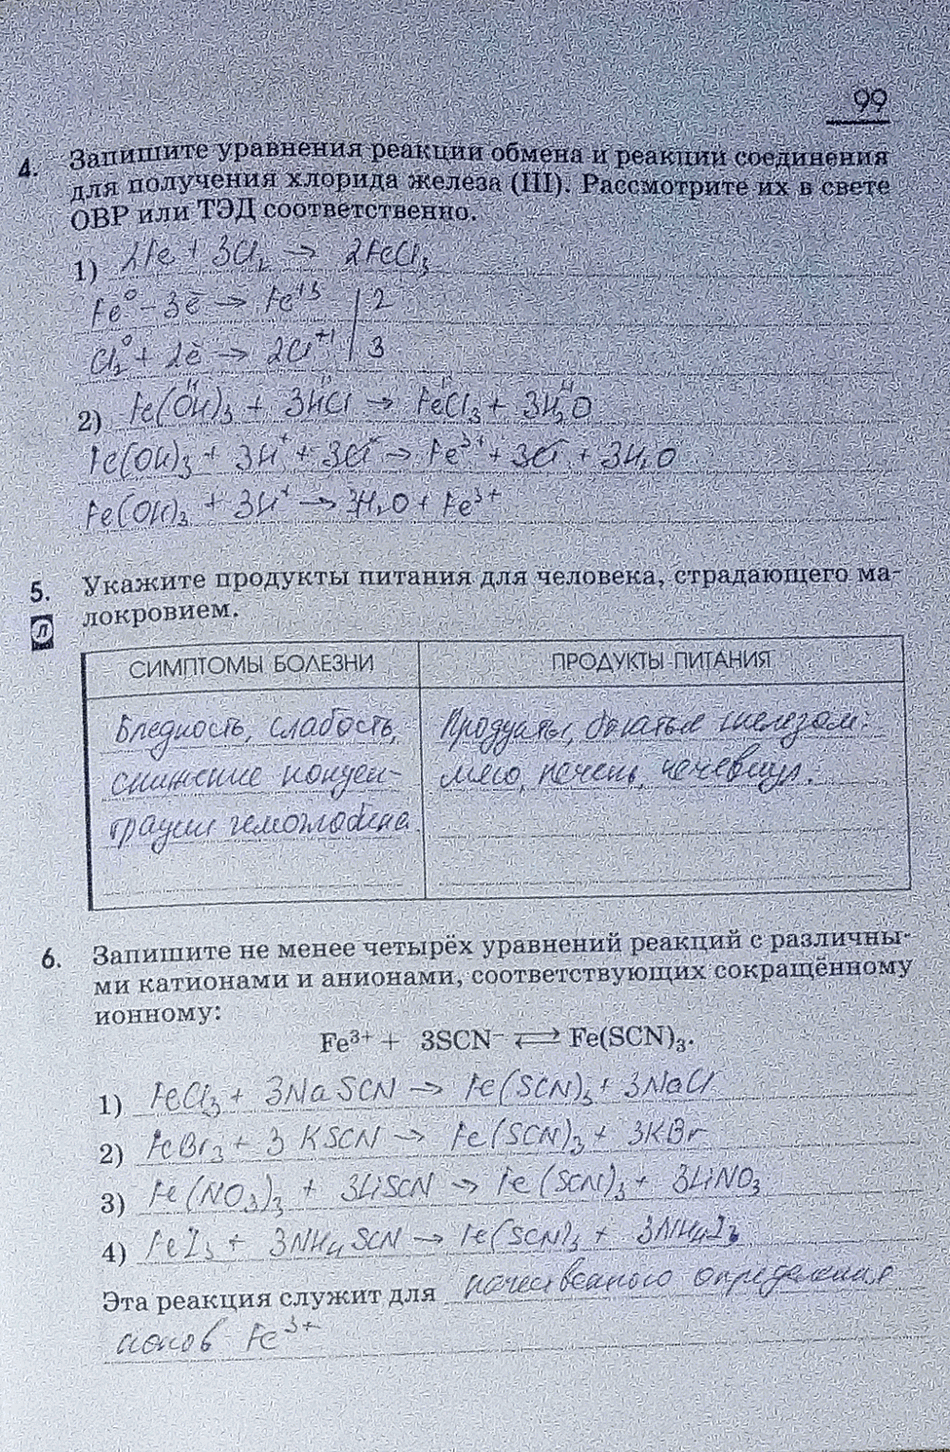 99
4. Запишите уравнения реакции обмена и реакции соединения
для получения хлорида железа (III). Рассмотрите их в свете
ОВР или ТЭД соответственно.
1) 2Fe + 3Cl₂ → 2FeCl₃
Fe⁰ - 3ē → Fe⁺³ | 2
Cl₂⁰ + 2ē → 2Cl⁺¹ | 3
2) Fe(OH)₃ + 3HCl → FeCl₃ + 3H₂O
Fe(OH)₃ + 3H⁺ + 3Cl⁻ → Fe³⁺ + 3Cl⁻ + 3H₂O
Fe(OH)₃ + 3H⁺ → 3H₂O + Fe³⁺
5. Укажите продукты питания для человека, страдающего ма-
Л локровием.
СИМПТОМЫ БОЛЕЗНИ ПРОДУКТЫ ПИТАНИЯ
Бледность, слабость, Продукты, богатые железом:
снижение концен- мясо, печень, чечевица.
трации гемоглобина.
6. Запишите не менее четырёх уравнений реакций с различны-
ми катионами и анионами, соответствующих сокращённому
ионному:
Fe³⁺ + 3SCN⁻ ⇄ Fe(SCN)₃.
1) FeCl₃ + 3NaSCN → Fe(SCN)₃ + 3NaCl
2) FeBr₃ + 3KSCN → Fe(SCN)₃ + 3KBr
3) Fe(NO₃)₃ + 3LiSCN → Fe(SCN)₃ + 3LiNO₃
4) FeI₃ + 3NH₄SCN → Fe(SCN)₃ + 3NH₄I
Эта реакция служит для качественного определения
ионов Fe³⁺